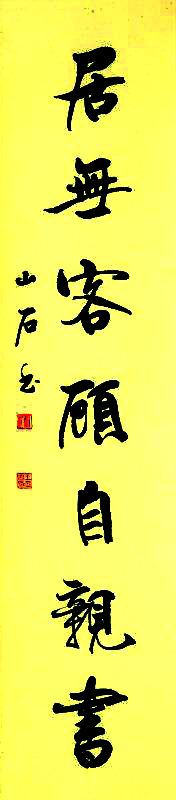 居無客顧自親書
山石